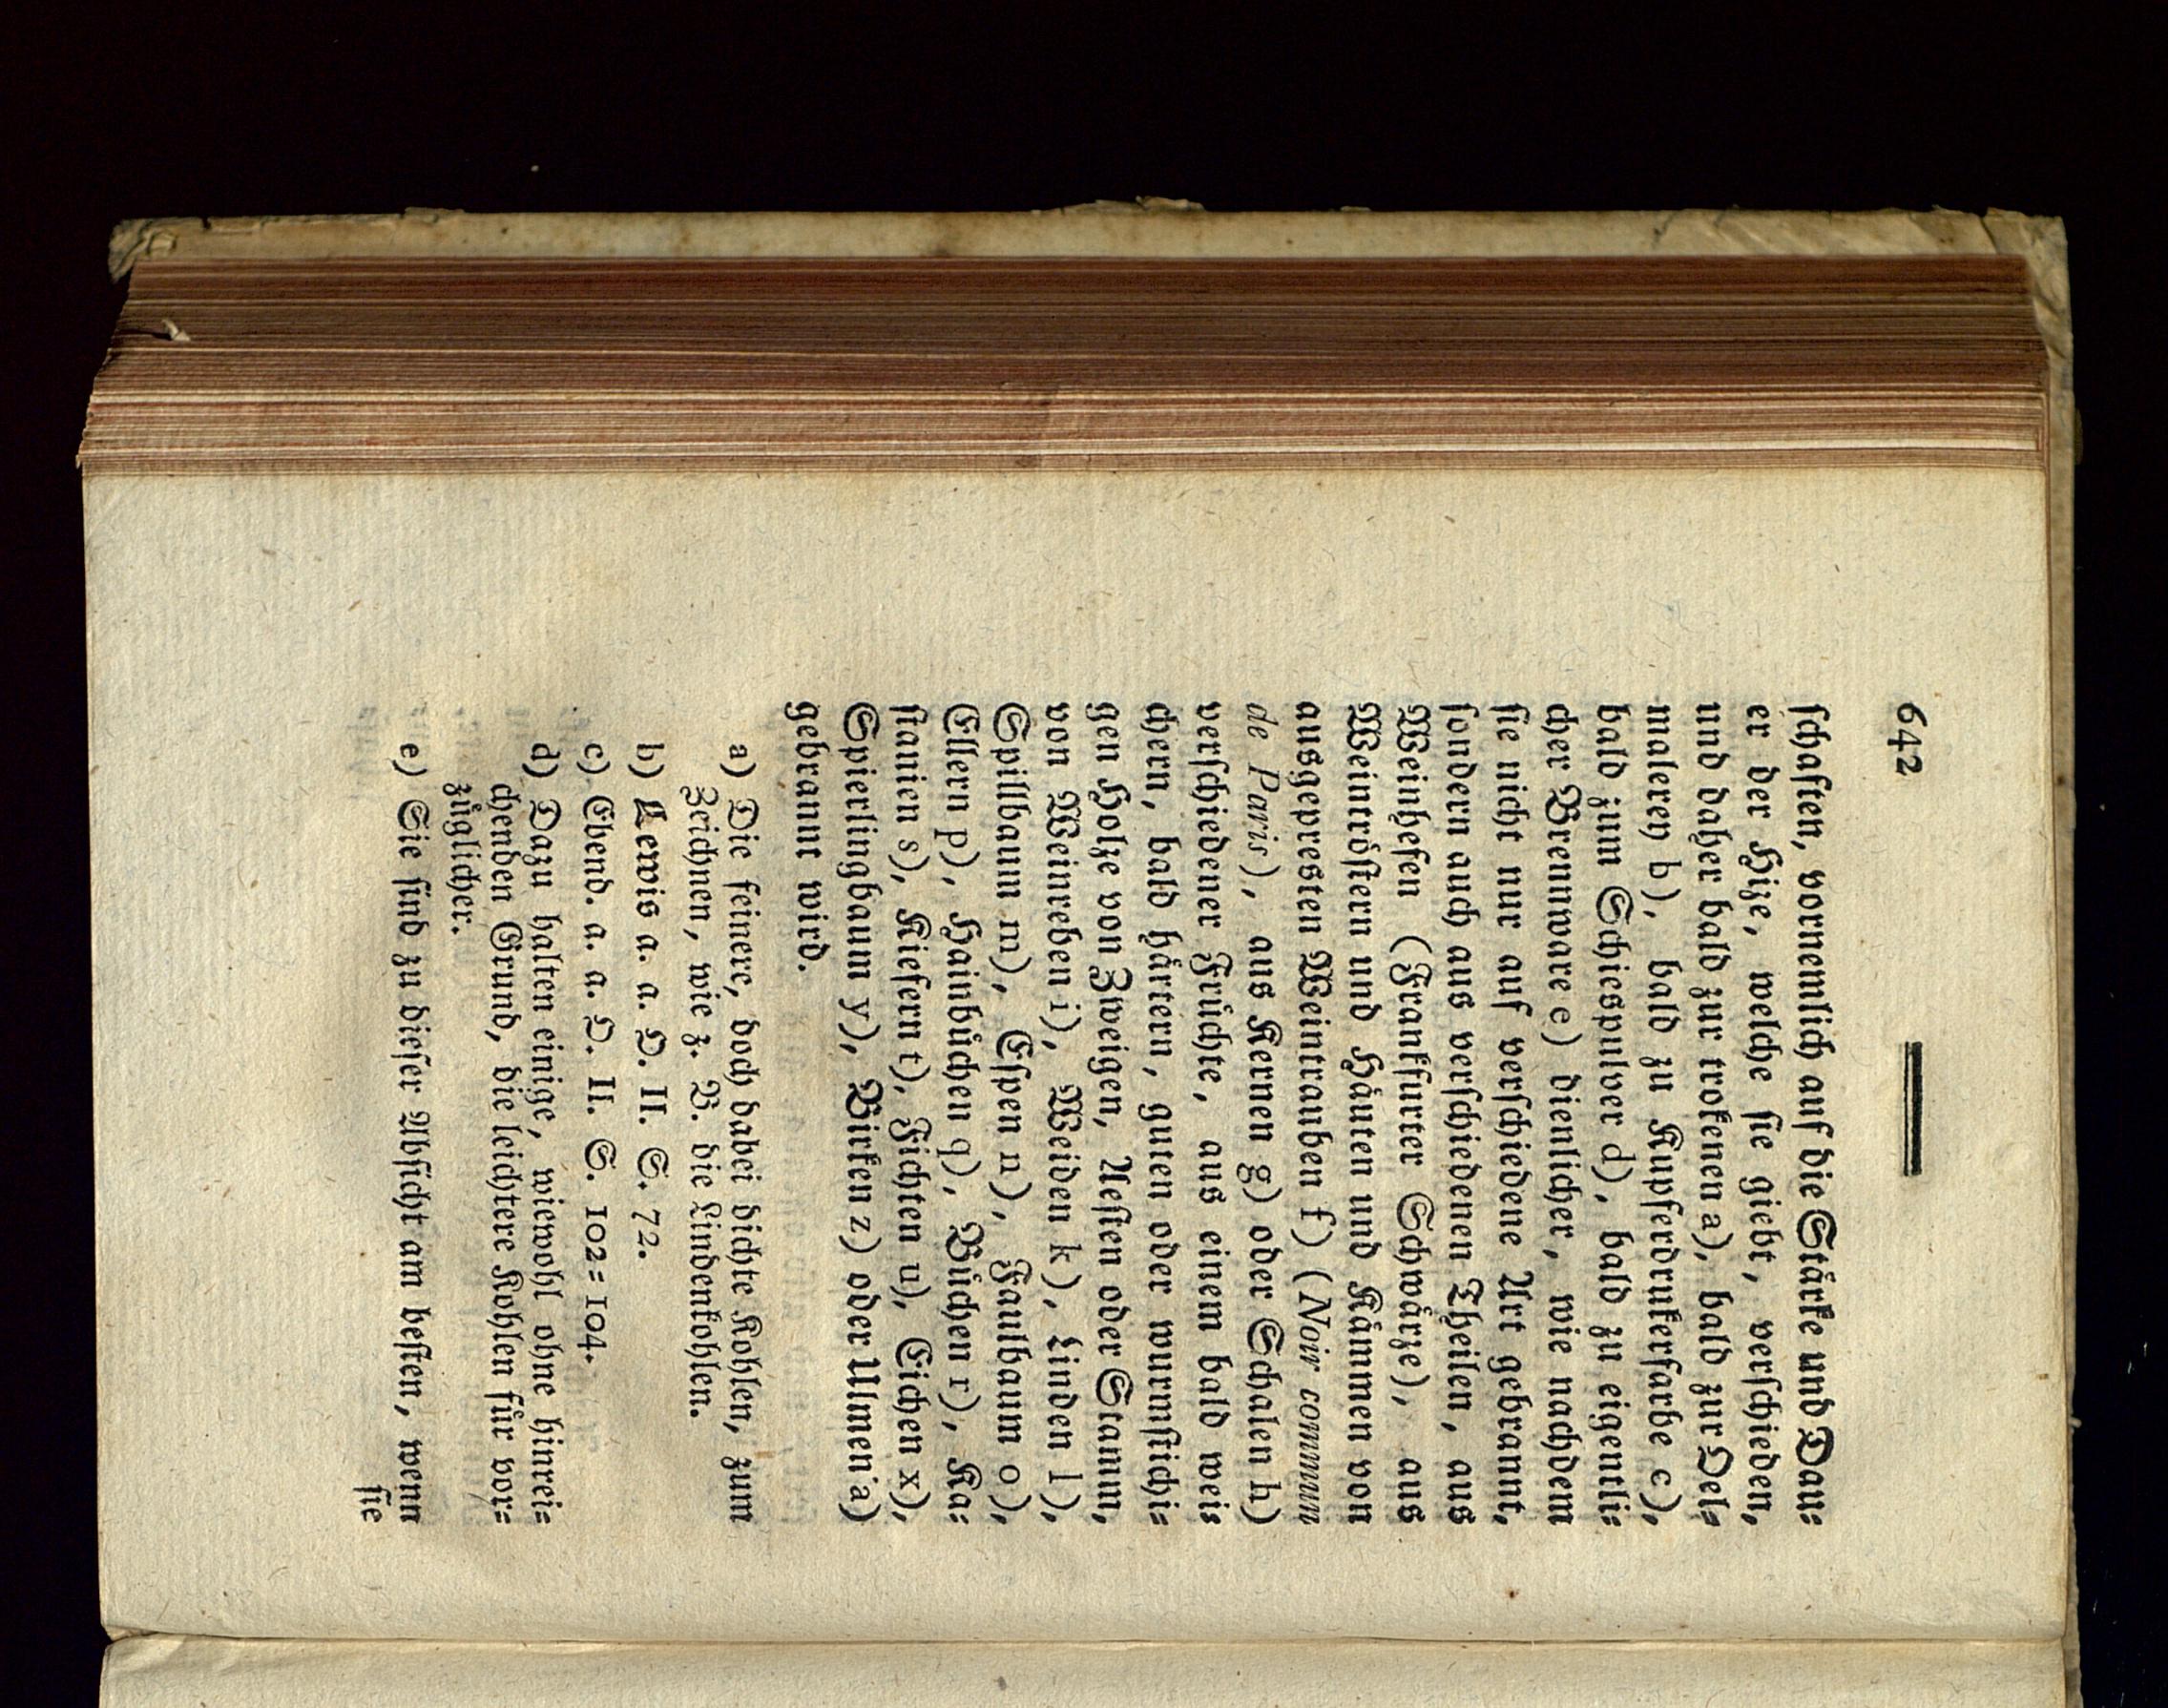 642
ſchaften, vornemlich auf die Stårke und Dau⸗
er der Hize, welche ſie giebt, verſchieden,
und daher bald zur trokenen a), bald zur Oel⸗
malerey b), bald zu Kupferdrukerfarbe c),
bald zum Schiespulver d), bald zu eigentli⸗
cher Brennware e) dienlicher, wie nachdem
ſie nicht nur auf verſchiedene Art gebrannt,
ſondern auch aus verſchiedenen Theilen, aus
Weinhefen (Frankfurter Schwårze), aus
Weintröſtern und Håuten und Kåmmen von
ausgepresten Weintrauben f) (Noir commun
de Paris), aus Kernen g) oder Schalen h)
verſchiedener Frůchte, aus einem bald weis
chern, bald hårtern, guten oder wurmſtichi⸗
gen Holze von Zweigen, Aeſten oder Stamm,
von Weinreben i), Weiden k), Linden l),
Spillbaum m), Eſpen n), Faulbaum o),
Ellern p), Hainbůchen q), Bůchen r), Ka⸗
ſtanien s), Kiefern t), Fichten u), Eichen x),
Spierlingbaum y), Birken z) oder Ulmen a)
gebrannt wird.
a) Die feinere, doch dabei dichte Kohlen, zum
Zeichnen, wie z. B. die Lindenkohlen.
b) Lewis a. a. O. II. S. 72.
c) Ebend. a. a. O. II. S. 102⸗104.
d) Dazu halten einige, wiewohl ohne hinrei⸗
chenden Grund, die leichtere Kohlen für vor⸗
zůglicher.
e) Sie ſind zu dieſer Abſicht am beſten, wenn
ſie